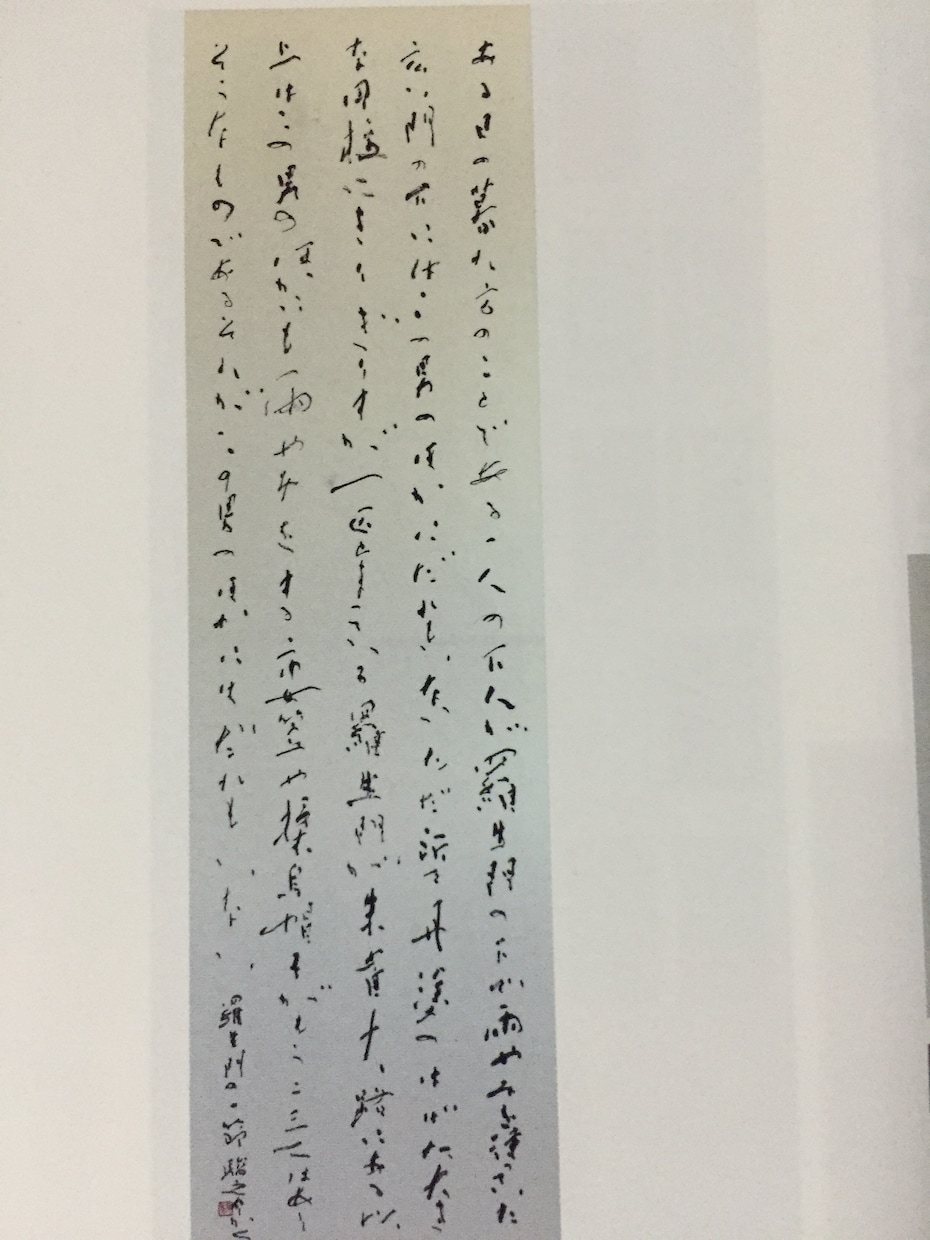 ある日の暮れ方のことである一人の下人が羅生門の下で雨やみを待っていた
広い門の下にはこの男のほかにだれもいないただ所々丹塗のはげた大き
な円柱にきりぎりすが一匹とまっている羅生門が朱雀大路にある以
上はこの男のほかにも雨やみをする市女笠や揉烏帽子がもう二三人はあり
そうなものであるそれがこの男のほかにはだれもいない 羅生門の一節